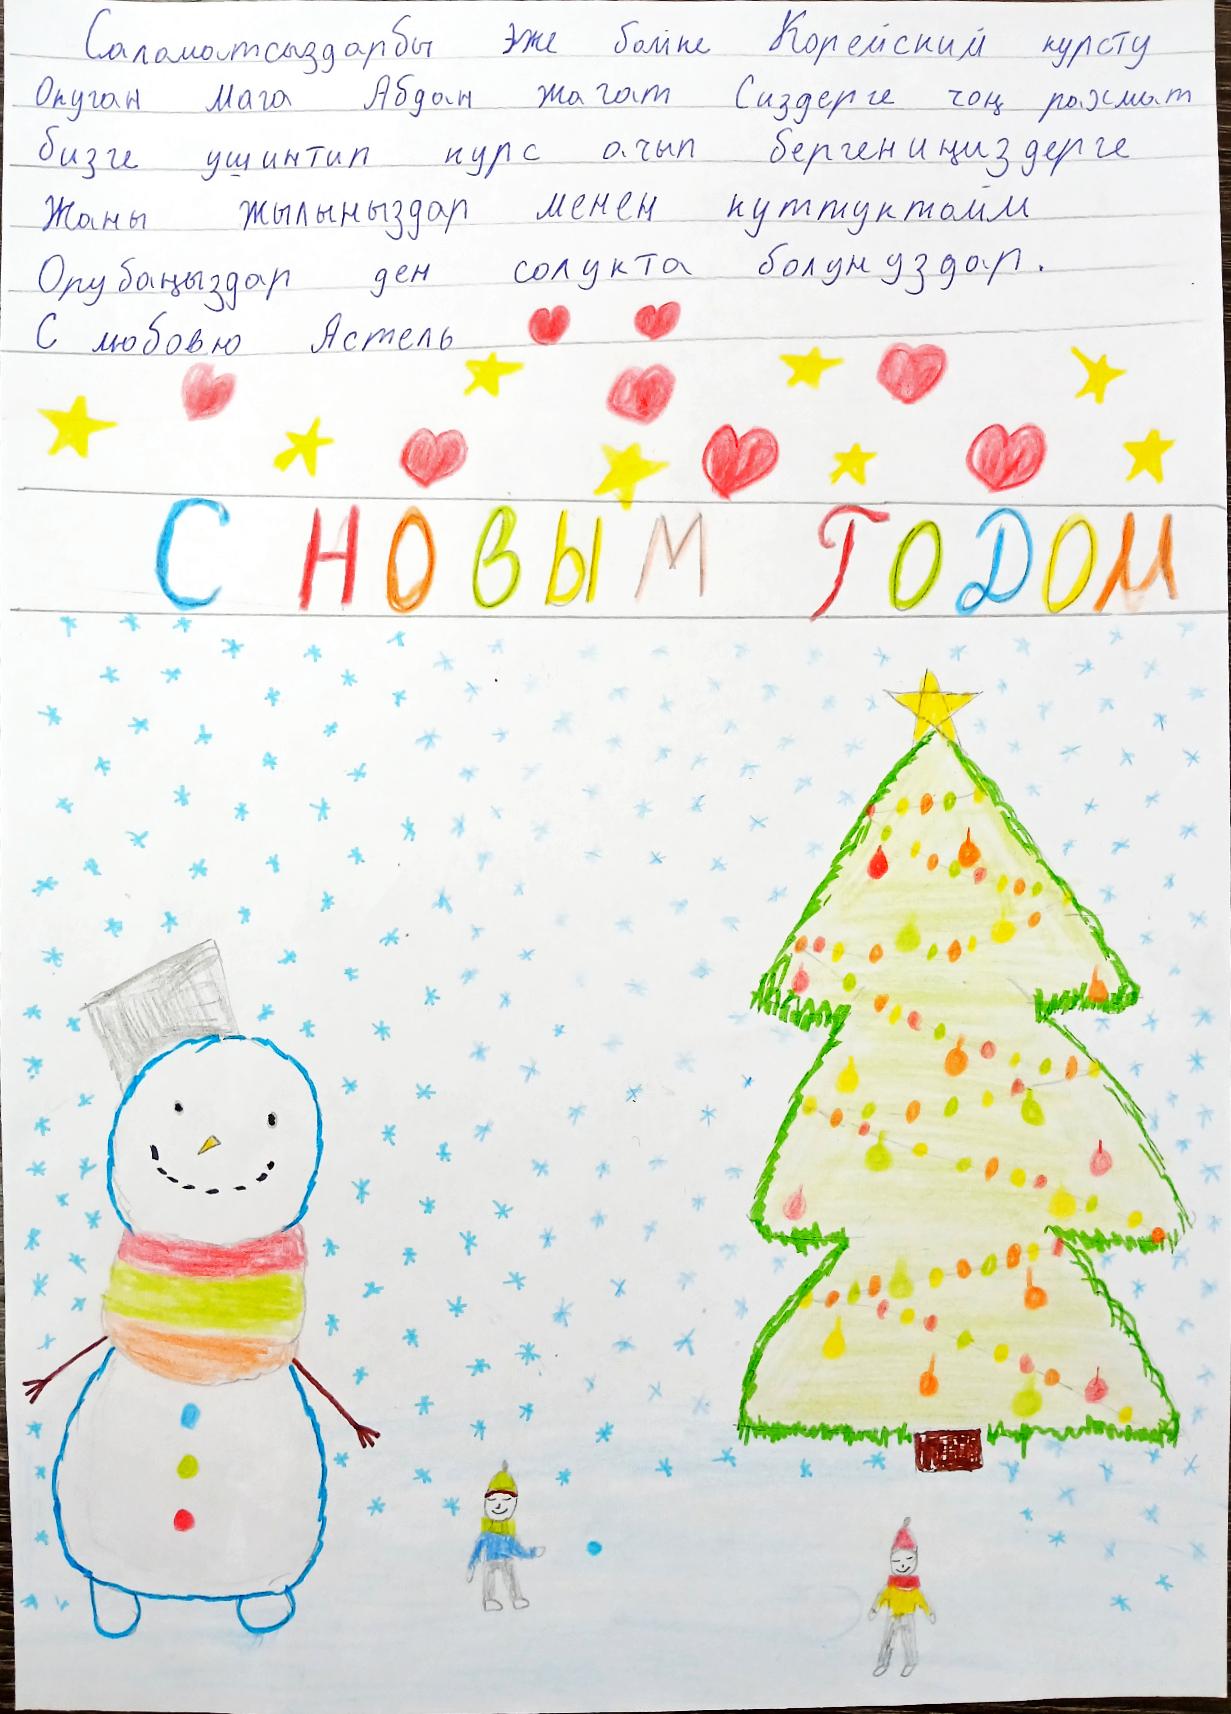 Саламатсыздарбы эже байке Корейский курсту
Окуган мага Абдан жагат Сиздерге чоң рахмат
бизге ушинтип курс ачып бергениңиздерге
Жаны жылыныздар менен куттуктайм
Орубаңыздар ден солукта болунуздар.
С любовю Астель
С НОВЫМ ГОДОМ